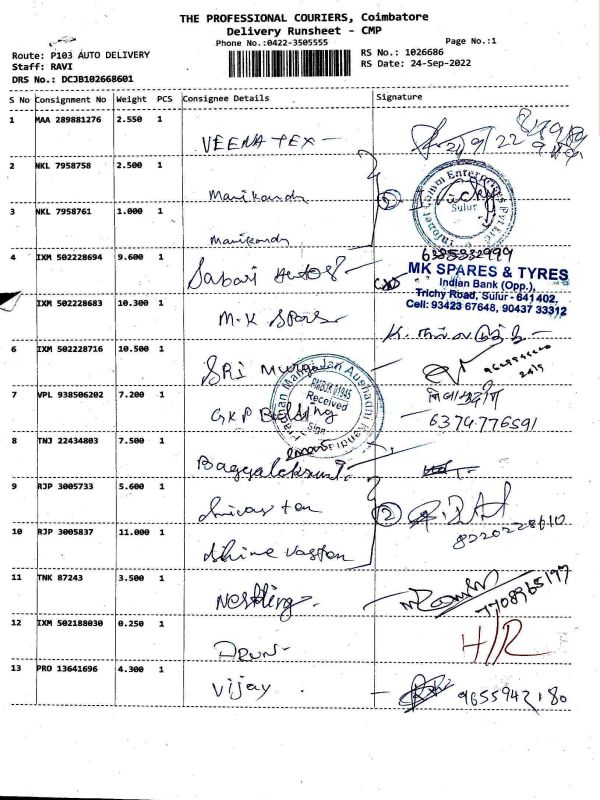 THE PROFESSIONAL COURIERS, Coimbatore
Delivery Runsheet - CMP
Phone No.:0422-3505555
Page No.:1
Route: P103 AUTO DELIVERY
RS No.: 1026686
Staff: RAVI
RS Date: 24-Sep-2022
DRS No.: DCJB102668601
S No Consignment No Weight PCS Consignee Details Signature
1 MAA 289881276 2.550 1
VEENA TEX -
2 NKL 7958758 2.500 1
Manikandn
3 NKL 7958761 1.000 1
Manikandn
Sulur
4 IXM 502228694 9.600 1
Sabari Autos
6385332999
MK SPARES & TYRES
Indian Bank (Opp.),
Trichy Road, Sulur - 641 402,
Cell: 93423 67648, 90437 33312
IXM 502228683 10.300 1
M.K Spars
6 IXM 502228716 10.500 1
SRI Murgan
Pradhan Mantri Jan Aushadhi Kendra
Received
Sign
7 VPL 938506202 7.200 1
GKP Building
6374776591
8 TNJ 22434803 7.500 1
9 RJP 3005733 5.600 1
2
8220228610
10 RJP 3005837 11.000 1
11 TNK 87243 3.500 1
Nestling
7708965197
12 IXM 502188030 0.250 1
Arun
H/R
13 PRO 13641696 4.300 1
Vijay
9655942180